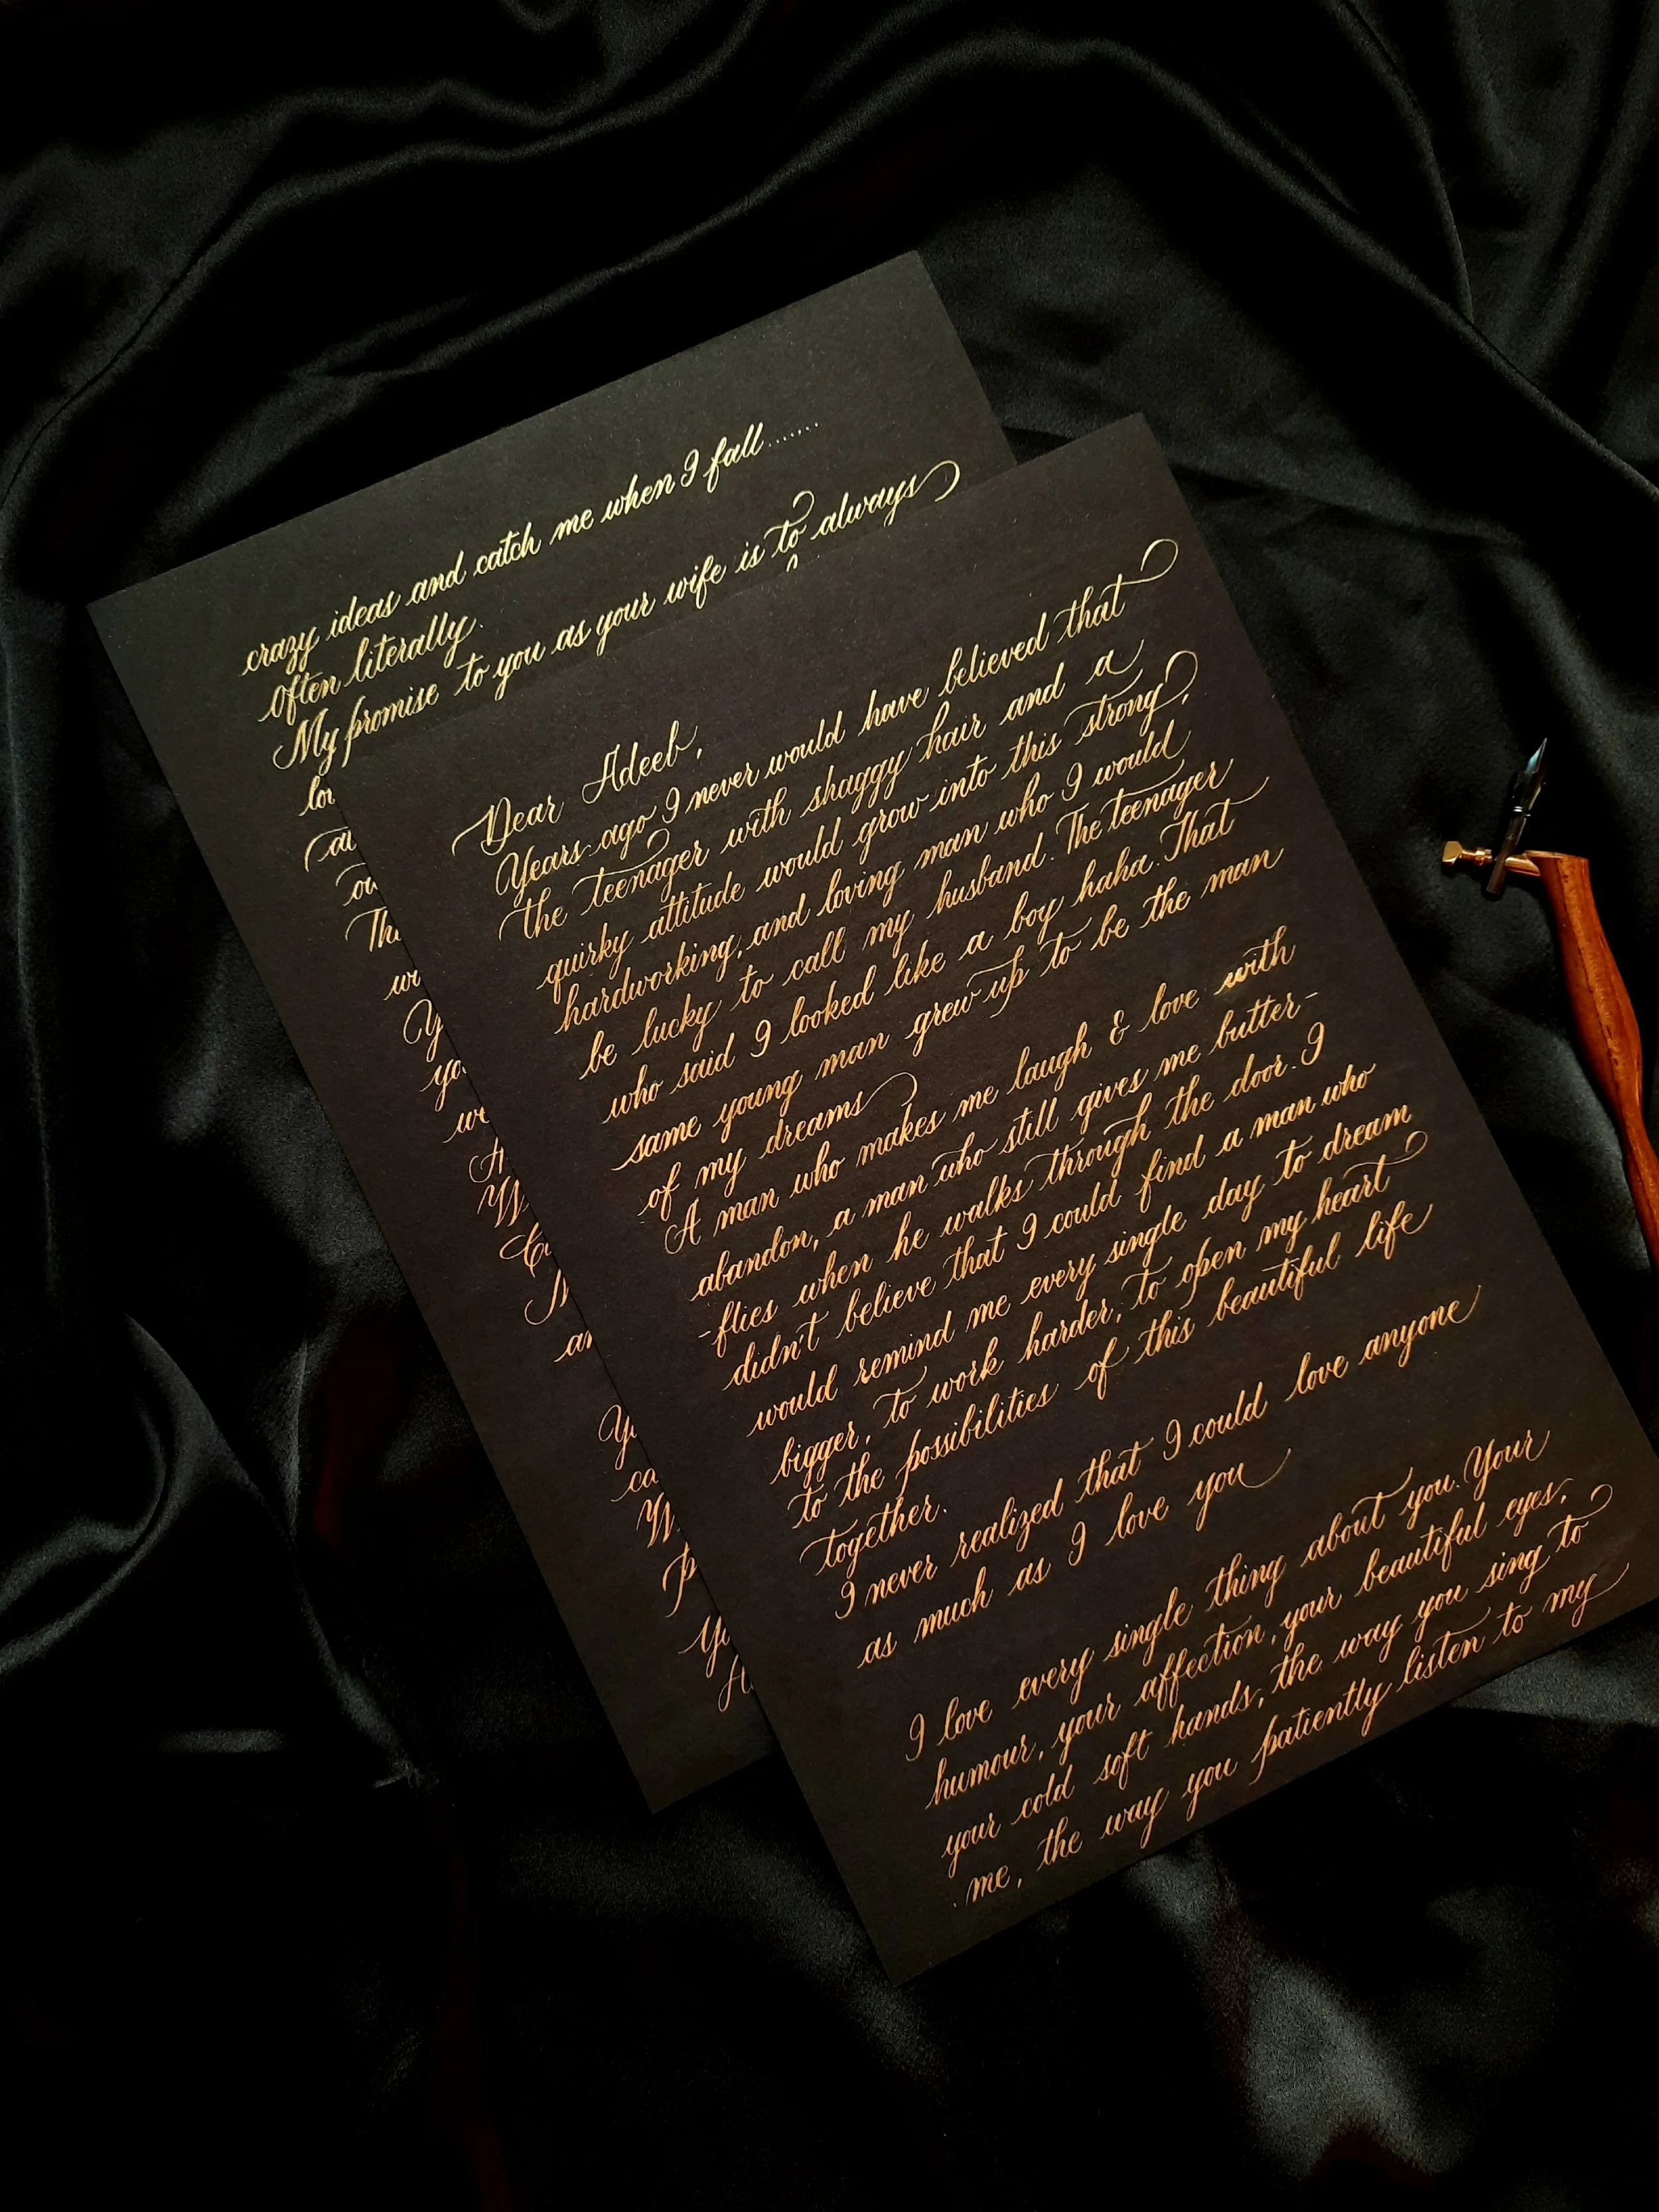 Dear Adeeb,
Years ago I never would have believed that
the teenager with shaggy hair and a
quirky attitude would grow into this strong,
hardworking, and loving man who I would
be lucky to call my husband. The teenager
who said I looked like a boy haha. That
same young man grew up to be the man
of my dreams
A man who makes me laugh & love with
abandon, a man who still gives me butter-
-flies when he walks through the door. I
didn't believe that I could find a man who
would remind me every single day to dream
bigger, to work harder, to open my heart
to the possibilities of this beautiful life
together.
I never realized that I could love anyone
as much as I love you
I love every single thing about you. Your
humour, your affection, your beautiful eyes,
your cold soft hands, the way you sing to
me, the way you patiently listen to my
crazy ideas and catch me when I fall.......
Often literally.
My promise to you as your wife is to always